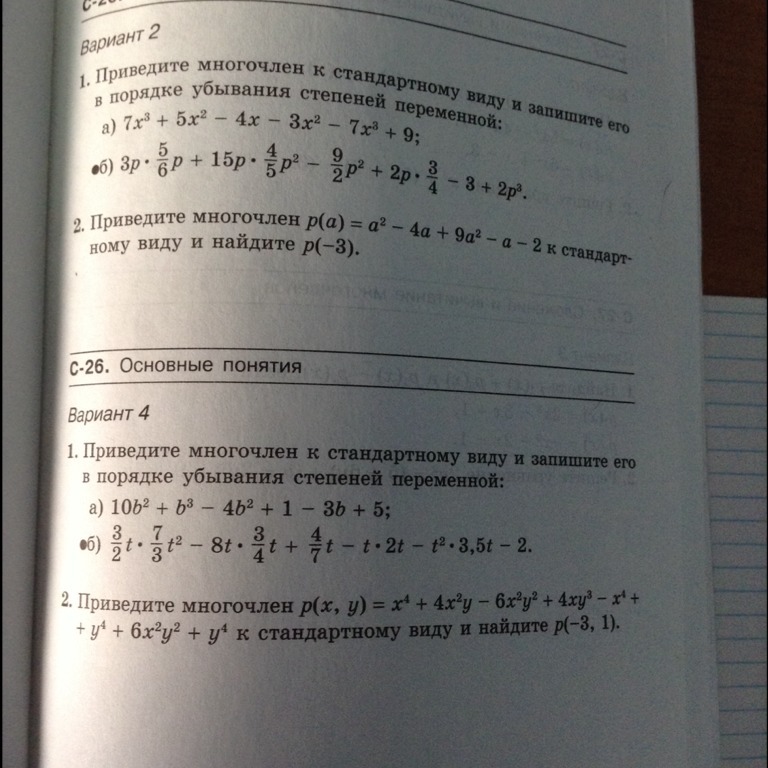 Вариант 2
1. Приведите многочлен к стандартному виду и запишите его
в порядке убывания степеней переменной:
а) 7x³ + 5x² − 4x − 3x² − 7x³ + 9;
•б) 3p · 5/6 p + 15p · 4/5 p² − 9/2 p² + 2p · 3/4 − 3 + 2p³.
2. Приведите многочлен p(a) = a² − 4a + 9a² − a − 2 к стандарт-
ному виду и найдите p(−3).
С-26. Основные понятия
Вариант 4
1. Приведите многочлен к стандартному виду и запишите его
в порядке убывания степеней переменной:
а) 10b² + b³ − 4b² + 1 − 3b + 5;
•б) 3/2 t · 7/3 t² − 8t · 3/4 t + 4/7 t − t · 2t − t² · 3,5t − 2.
2. Приведите многочлен p(x, y) = x⁴ + 4x²y − 6x²y² + 4xy³ − x⁴ +
+ y⁴ + 6x²y² + y⁴ к стандартному виду и найдите p(−3, 1).